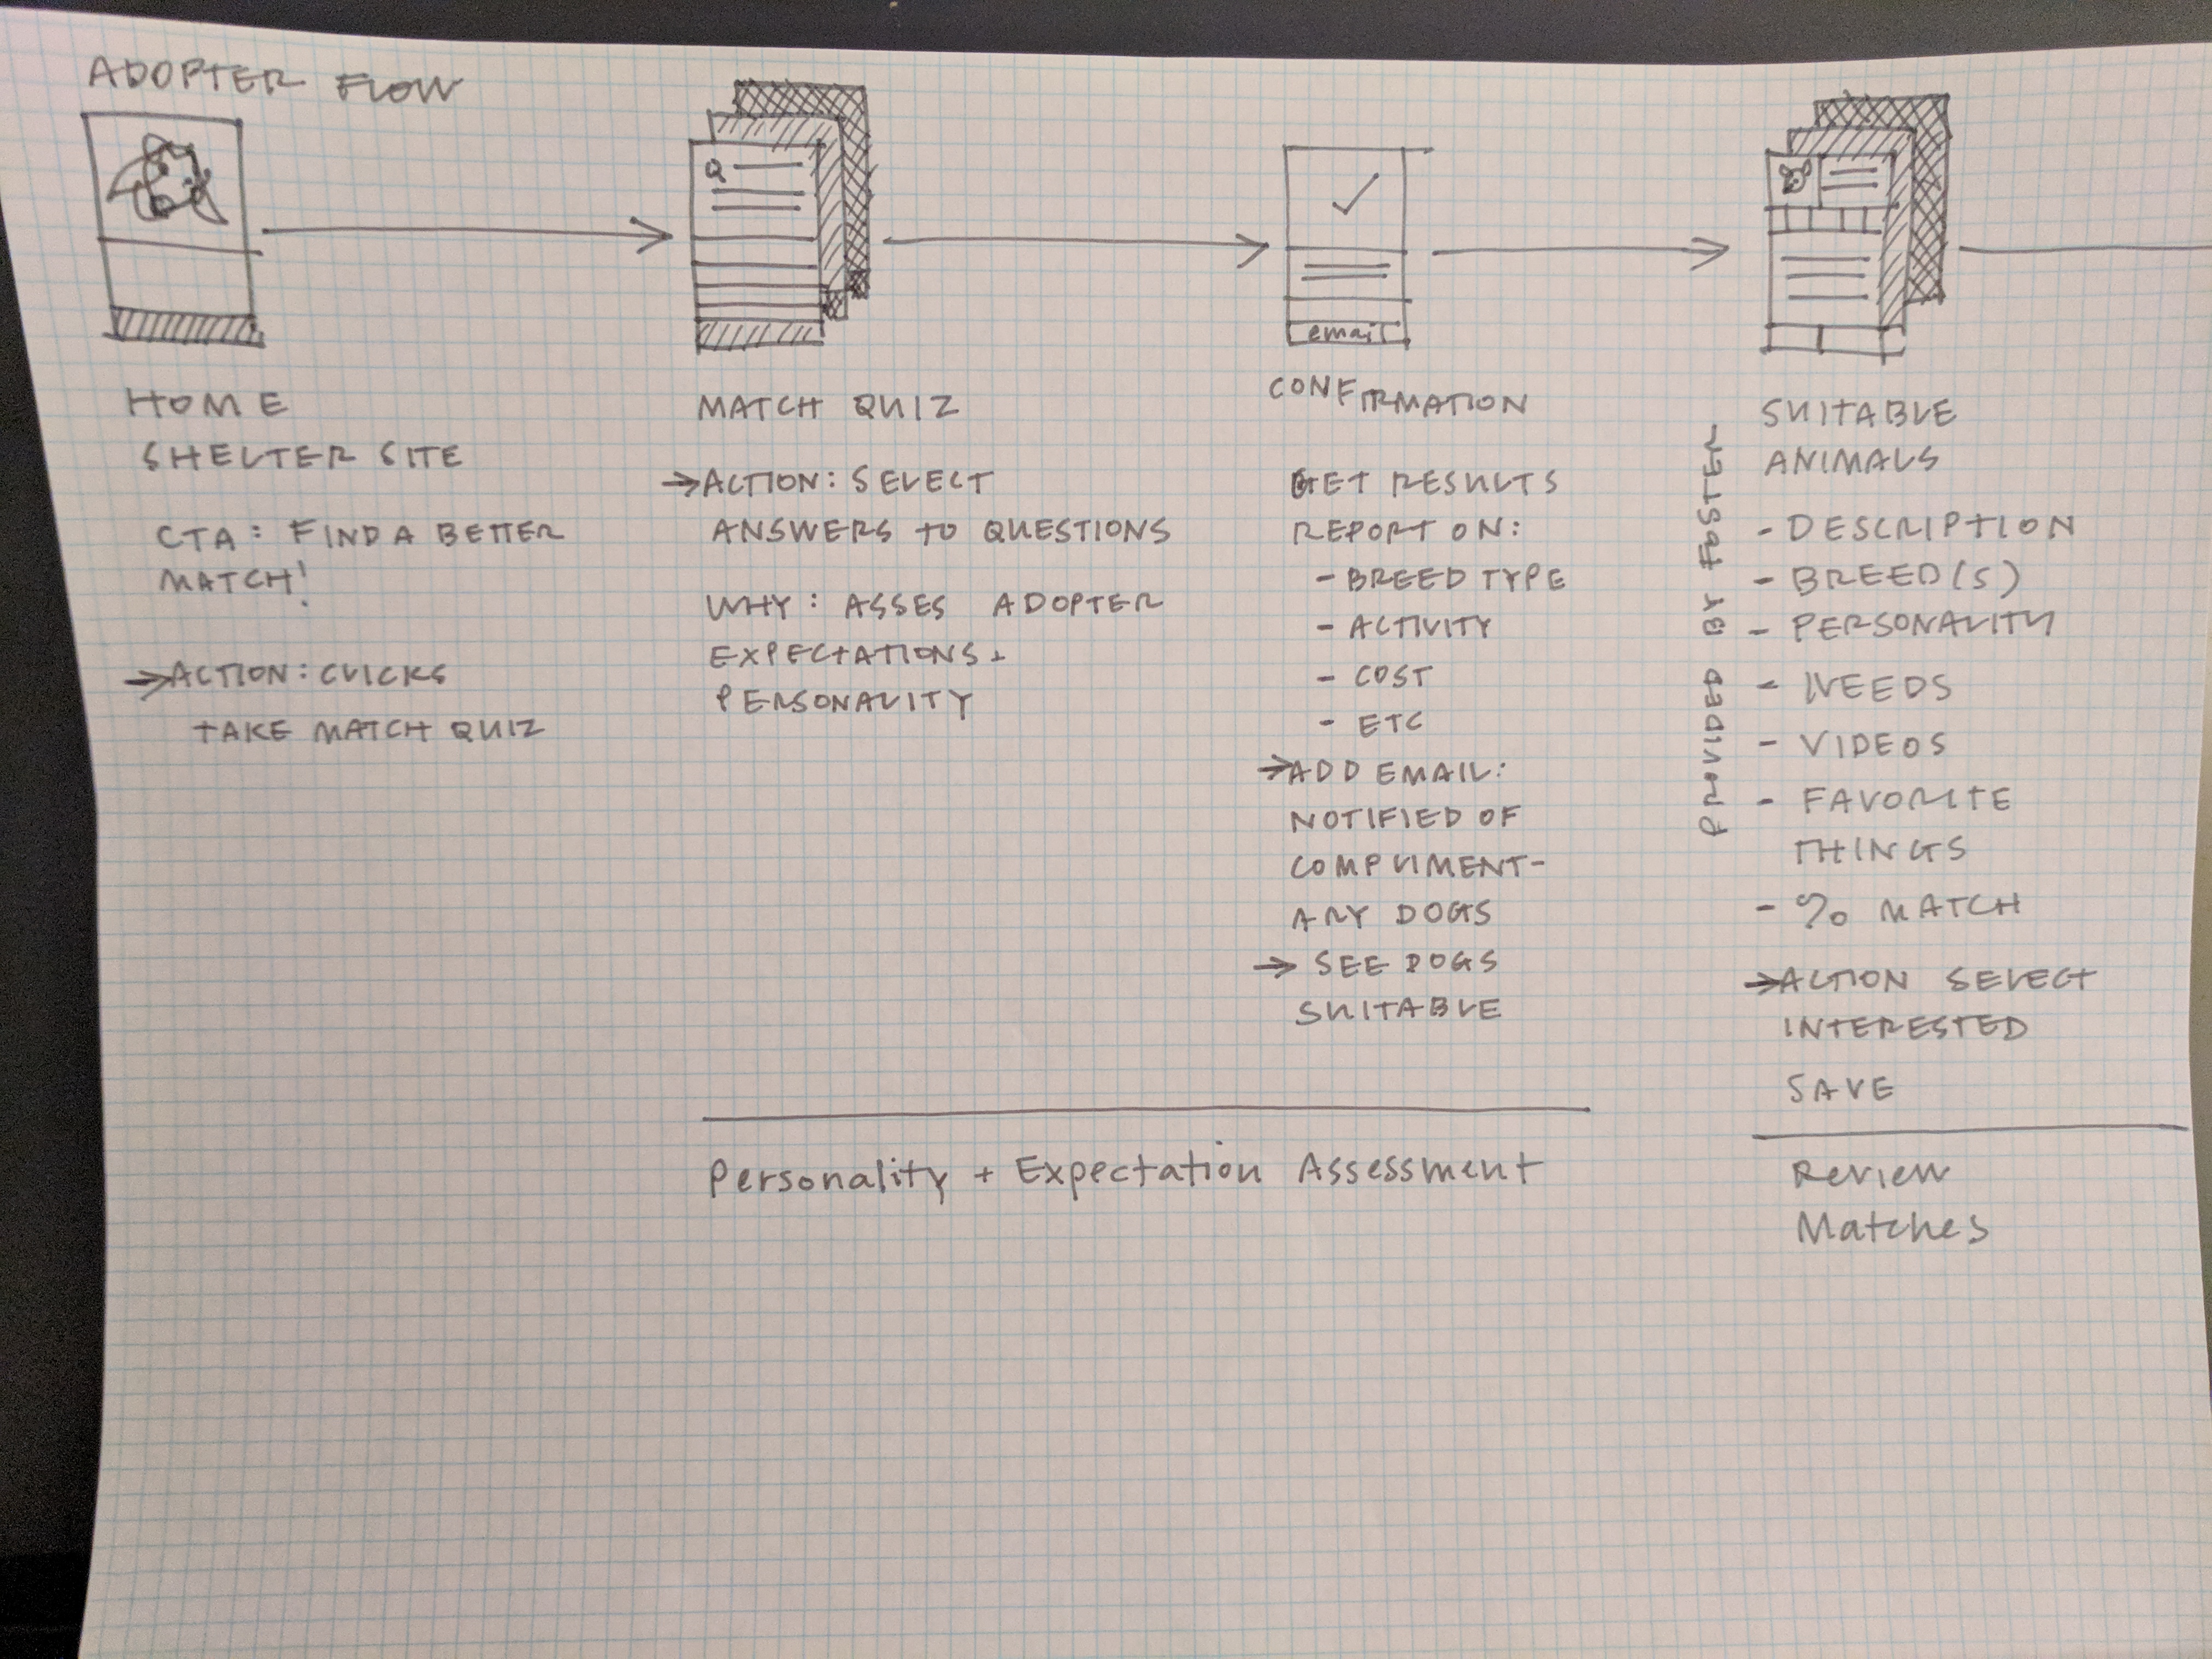 ADOPTER FLOW
HOME
SHELTER SITE
CTA: FIND A BETTER
MATCH!
→ACTION: CLICKS
TAKE MATCH QUIZ
Q
MATCH QUIZ
→ACTION: SELECT
ANSWERS TO QUESTIONS
WHY: ASSES ADOPTER
EXPECTATIONS +
PERSONALITY
email
CONFIRMATION
GET RESULTS
REPORT ON:
- BREED TYPE
- ACTIVITY
- COST
- ETC
→ADD EMAIL:
NOTIFIED OF
COMPLIMENT-
ARY DOGS
→ SEE DOGS
SUITABLE
Personality + Expectation Assessment
PROVIDED BY FOSTER
SUITABLE
ANIMALS
- DESCRIPTION
- BREED(S)
- PERSONALITY
- NEEDS
- VIDEOS
- FAVORITE
THINGS
- % MATCH
→ACTION SELECT
INTERESTED
SAVE
Review
Matches